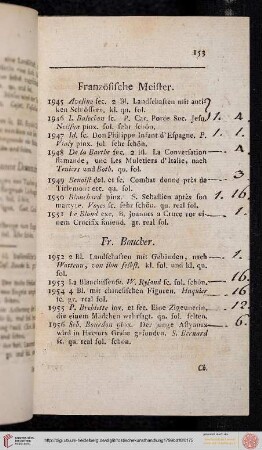 153
Französische Meister.
1945 Aveline sc. 2 Bl. Landschaften mit antiken Schlössern, kl. qu. fol.
1946 I. Balechou sc. P. Car. Porée Soc. Jesu. Neilson pinx. fol. sehr schön. 1. 4.
1947 Id. sc. Don Philippe Infant d'Espagne. P. Vialy pinx. fol. sehr schön. 1.
1948 De la Barthe sc. 2 Bl. La Conversation flamande, und Les Muletiers d'Italie, nach Teniers und Both. qu. fol. 4.
1949 Benoist del. et sc. Combat donné près de Tirlemont etc. qu. fol. 3
1950 Blanchard pinx. S. Sebastien après son martyre. Voyez sc. sehr schön. qu. real fol. 1. 16
1951 Le Blond exc. B. joannes a Cruce vor einem Crucifix knieend. gr. real fol.
Fr. Boucher.
1952 2 Bl. Landschaften mit Gebäuden, nach Watteau, von ihm selbst. kl. fol. und kl. qu. fol. 1.
1953 La Blanchisseuse. W. Ryland sc. fol. schön.
1954 4 Bl. mit chinesischen Figuren. Huquier sc. gr. real fol. 16
1955 P. Brebiette inv. et fec. Eine Zigeunerin, die einem Mädchen wahrsagt. qu. fol. selten. 12
1956 Seb. Bourdon pinx. Der junge Astyanax wird in Hectors Grabe gefunden. S. Bernard sc. qu. real fol. schön. 6.
Ch.